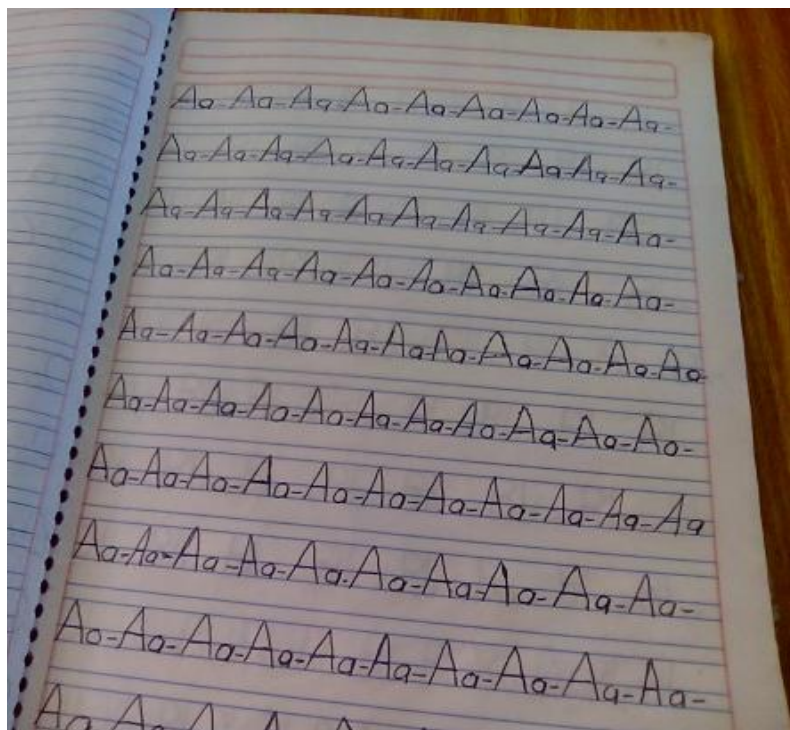 Aa-Aa-Aa-Aa-Aa-Aa-Aa-Aa-Aa-
Aa-Aa-Aa-Aa-Aa-Aa-Aa-Aa-Aa-Aa-
Aa-Aa-Aa-Aa-Aa-Aa-Aa-Aa-Aa-Aa-
Aa-Aa-Aa-Aa-Aa-Aa-Aa-Aa-Aa-Aa-
Aa-Aa-Aa-Aa-Aa-Aa-Aa-Aa-Aa-Aa-Aa
Aa-Aa-Aa-Aa-Aa-Aa-Aa-Aa-Aa-Aa-Aa-
Aa-Aa-Aa-Aa-Aa-Aa-Aa-Aa-Aa-Aa-Aa
Aa-Aa-Aa-Aa-Aa-Aa-Aa-Aa-Aa-Aa-
Aa-Aa-Aa-Aa-Aa-Aa-Aa-Aa-Aa-Aa-
Aa